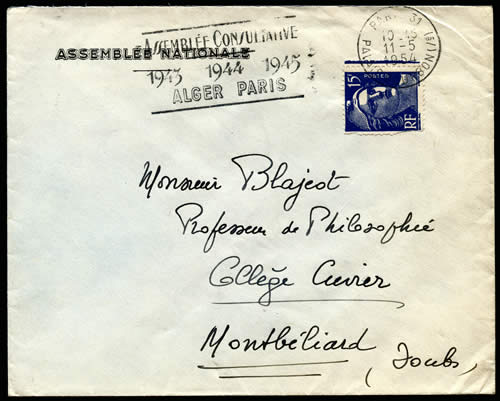 ASSEMBLÉE CONSULTATIVE
ASSEMBLÉE NATIONALE
1943 1944 1945
ALGER PARIS
PARIS 31
10 45
11-5
1954
15F
POSTES
RF
Monsieur Blajeot
Professeur de Philosophie
Collège Cuvier
Montbéliard
(Doubs)